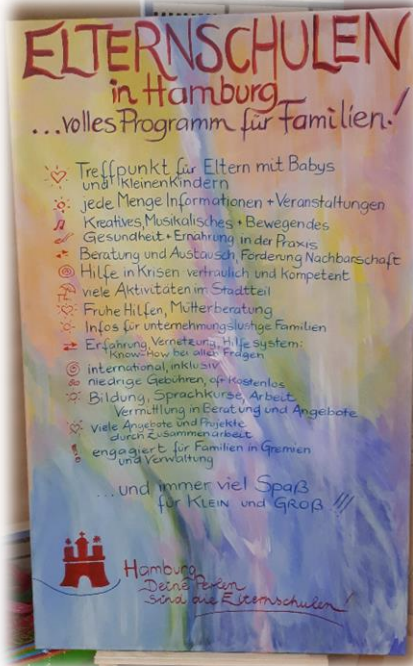 ELTERNSCHULEN
in Hamburg
...volles Programm für Familien!
Treffpunkt für Eltern mit Babys
und kleinen Kindern
jede Menge Informationen + Veranstaltungen
Kreatives, Musikalisches + Bewegendes
Gesundheit + Ernährung in der Praxis
Beratung und Austausch, Förderung Nachbarschaft
Hilfe in Krisen vertraulich und kompetent
viele Aktivitäten im Stadtteil
Frühe Hilfen, Mütterberatung
Infos für unternehmungslustige Familien
Erfahrung, Vernetzung, Hilfesystem:
Know-How bei allen Fragen
international, inklusiv
niedrige Gebühren, oft kostenlos
Bildung, Sprachkurse, Arbeit
Vermittlung in Beratung und Angebote
viele Angebote und Projekte
durch Zusammenarbeit
engagiert für Familien in Gremien
und Verwaltung
...und immer viel Spaß
für KLEIN und GROß !!!
Hamburg
Deine Perlen
sind die Elternschulen!